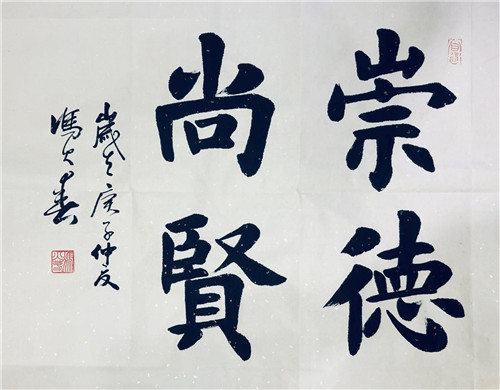 崇德
尚賢
歲在庚子仲夏
馮大春